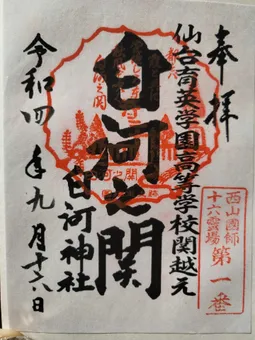 奉拝
仙台育英学園高等学校関越え
白河之関
白河神社
令和四年九月十六日
西山國師
十六霊場
第一番